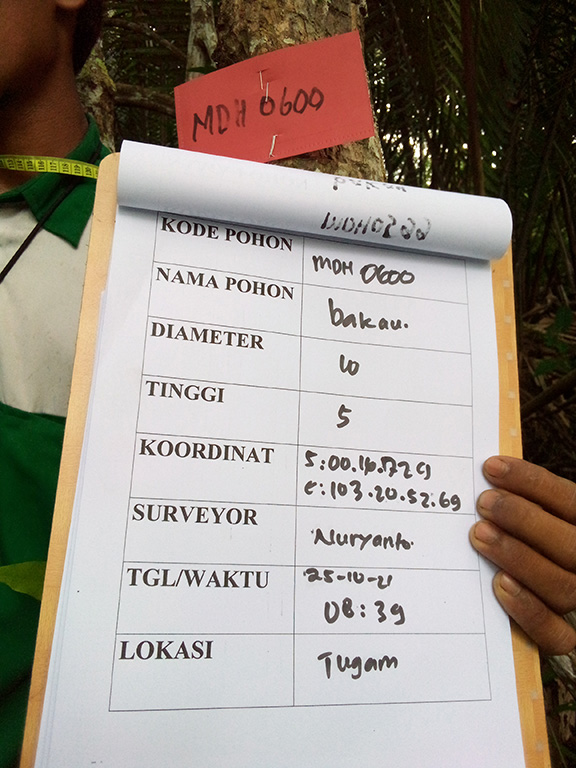 MDH 0600
KODE POHON MDH 0600
NAMA POHON bakau.
DIAMETER 10
TINGGI 5
KOORDINAT S:00.16.
E:103.20.52.69
SURVEYOR Nuryanto.
TGL/WAKTU 25-10-21
08:39
LOKASI Tugam